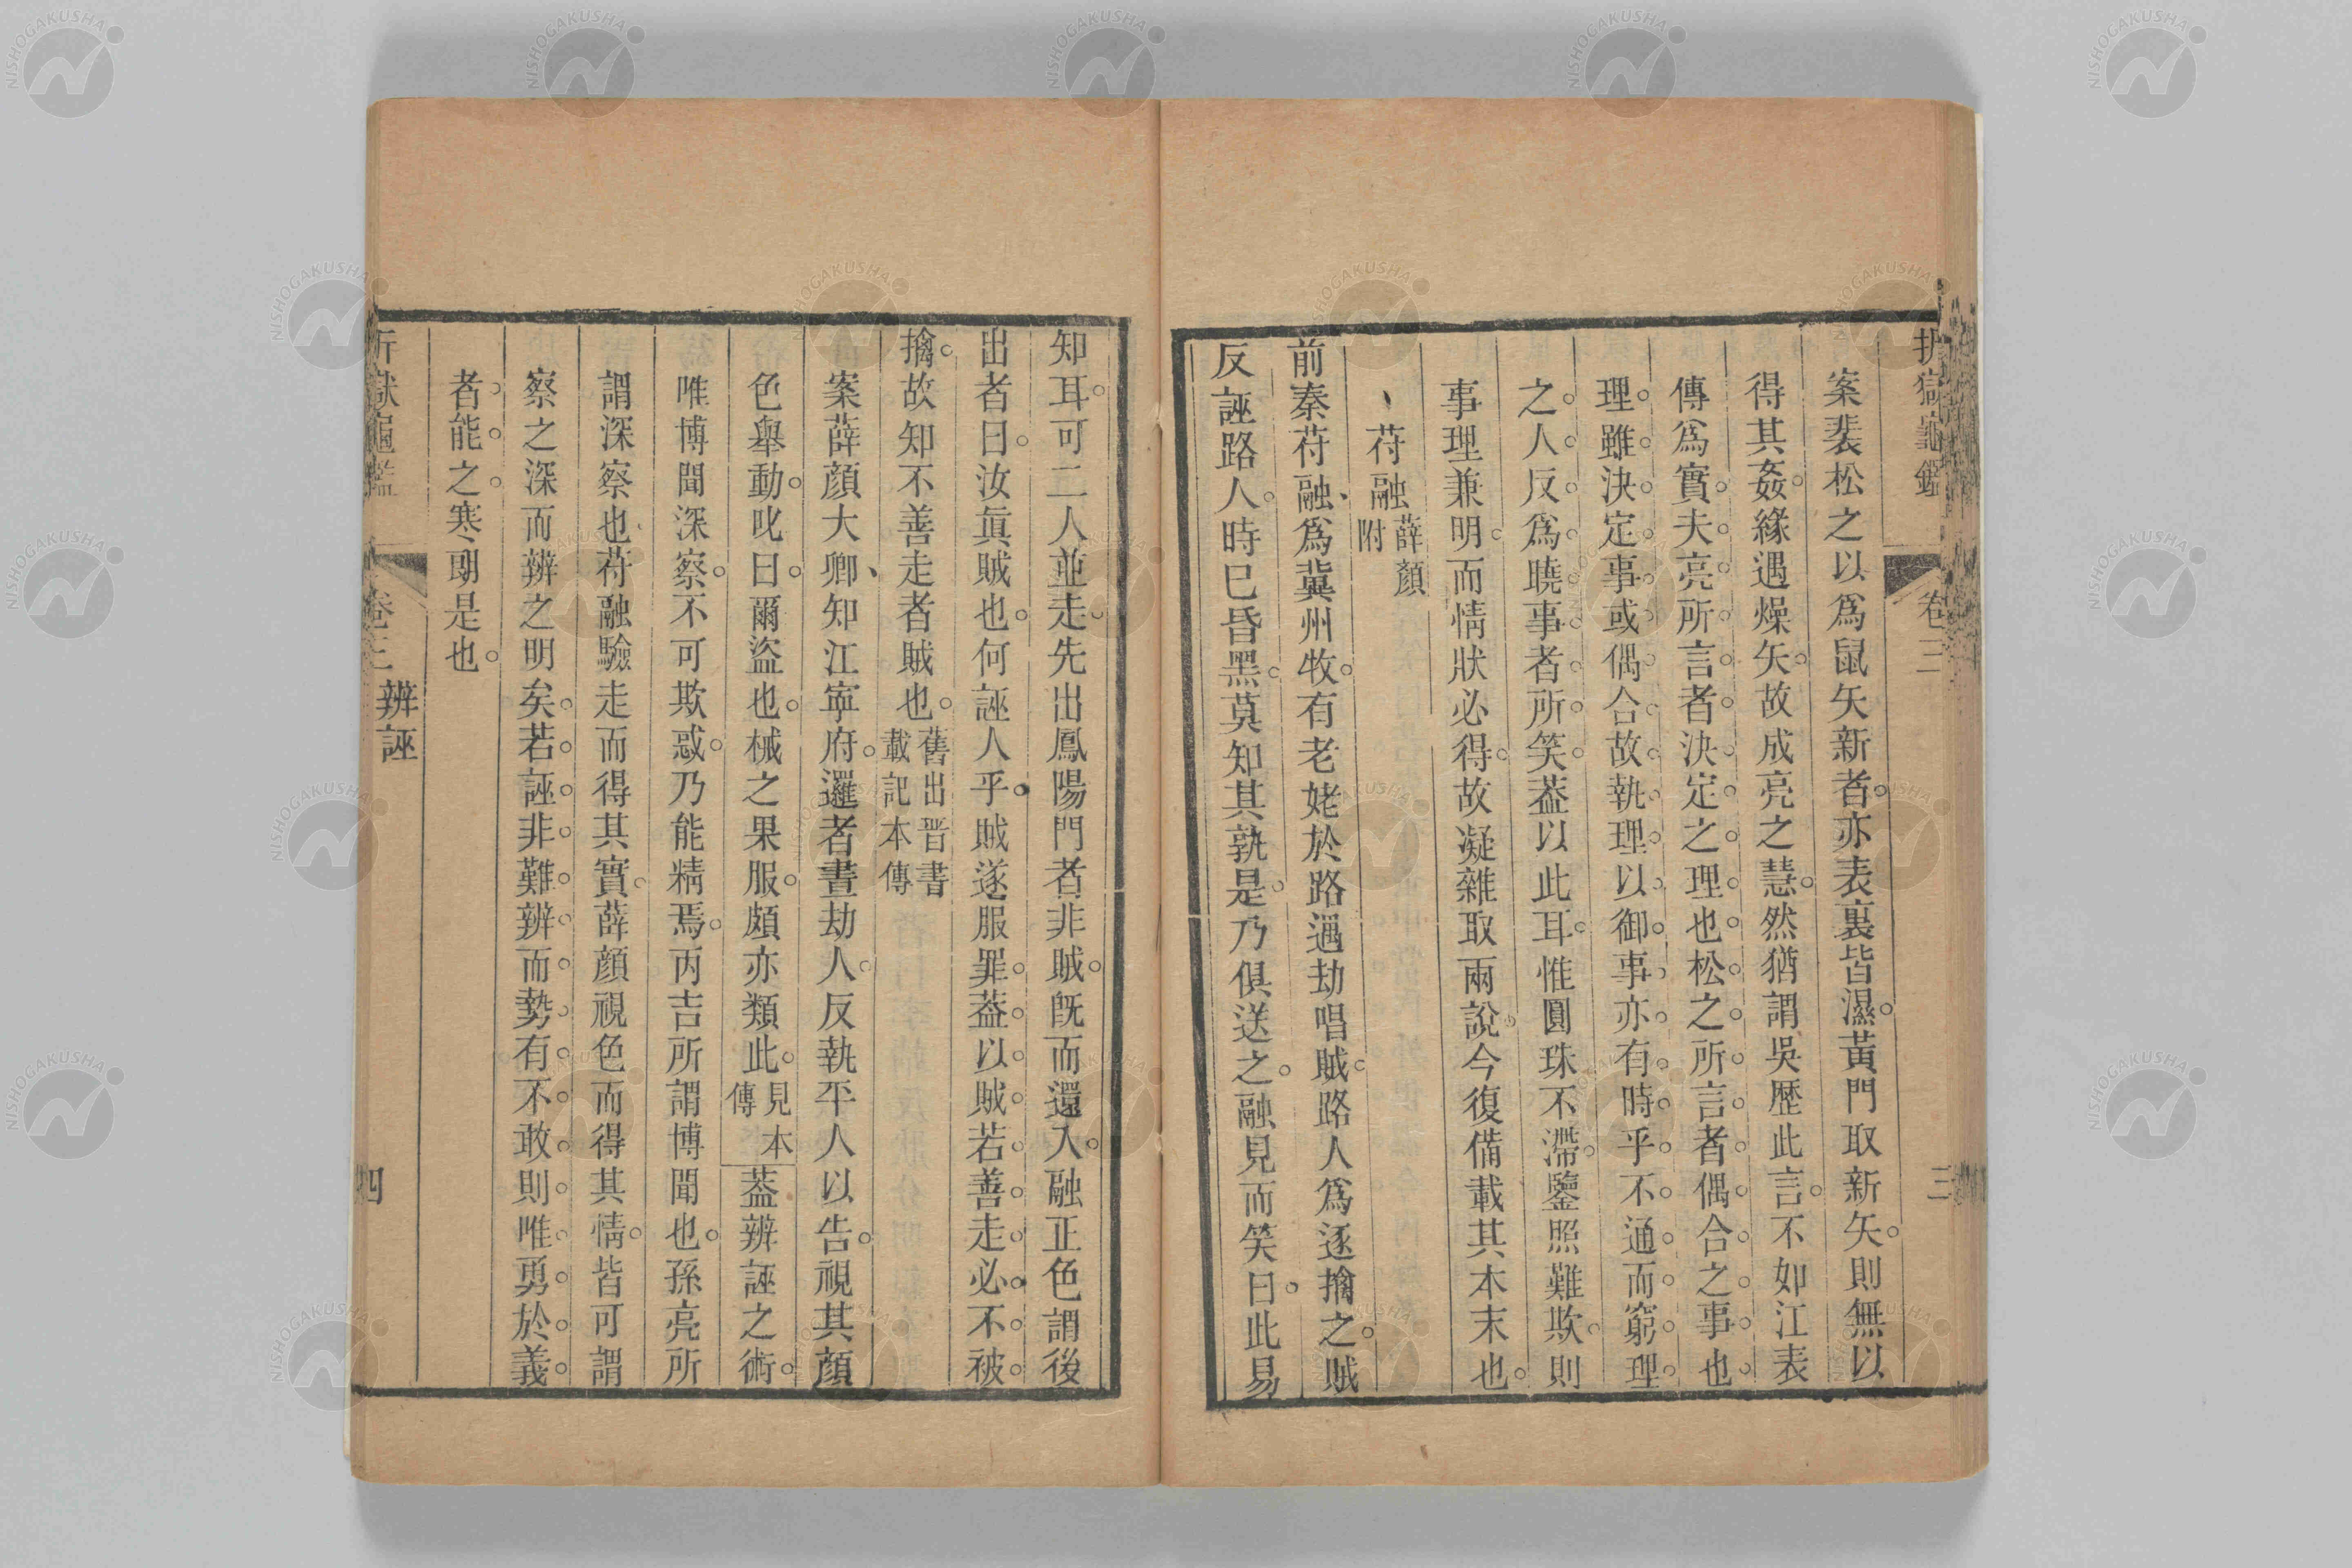 折獄龜鑑 卷三 三
案裴松之以爲鼠矢新者亦表裏皆濕黃門取新矢則無以
得其姦緣遇燥矢故成亮之慧然猶謂吳歷此言不如江表
傳爲實夫亮所言者決定之理也松之所言者偶合之事也
理雖決定事或偶合故執理以御事亦有時乎不通而窮理
之人反爲曉事者所笑葢以此耳惟圓珠不滯鑒照難欺則
事理兼明而情狀必得故凝雜取兩說今復備載其本末也
苻融薛顏附
前秦苻融爲冀州牧有老姥於路遇劫唱賊路人爲逐擒之賊
反誣路人時已昏黑莫知其孰是乃俱送之融見而笑曰此易
知耳可二人並走先出鳳陽門者非賊旣而還入融正色謂後
出者曰汝眞賊也何誣人乎賊遂服罪葢以賊若善走必不被
擒故知不善走者賊也舊出晋書載記本傳
案薛顏大卿知江寧府邏者晝劫人反執平人以告視其顏
色舉動叱曰爾盜也械之果服頗亦類此見本傳葢辨誣之術
唯博聞深察不可欺惑乃能精焉丙吉所謂博聞也孫亮所
謂深察也苻融驗走而得其實薛顏視色而得其情皆可謂
察之深而辨之明矣若誣非難辨而勢有不敢則唯勇於義
者能之寒朗是也
折獄龜鑑 卷三 辨誣 四
NISHOGAKUSHA